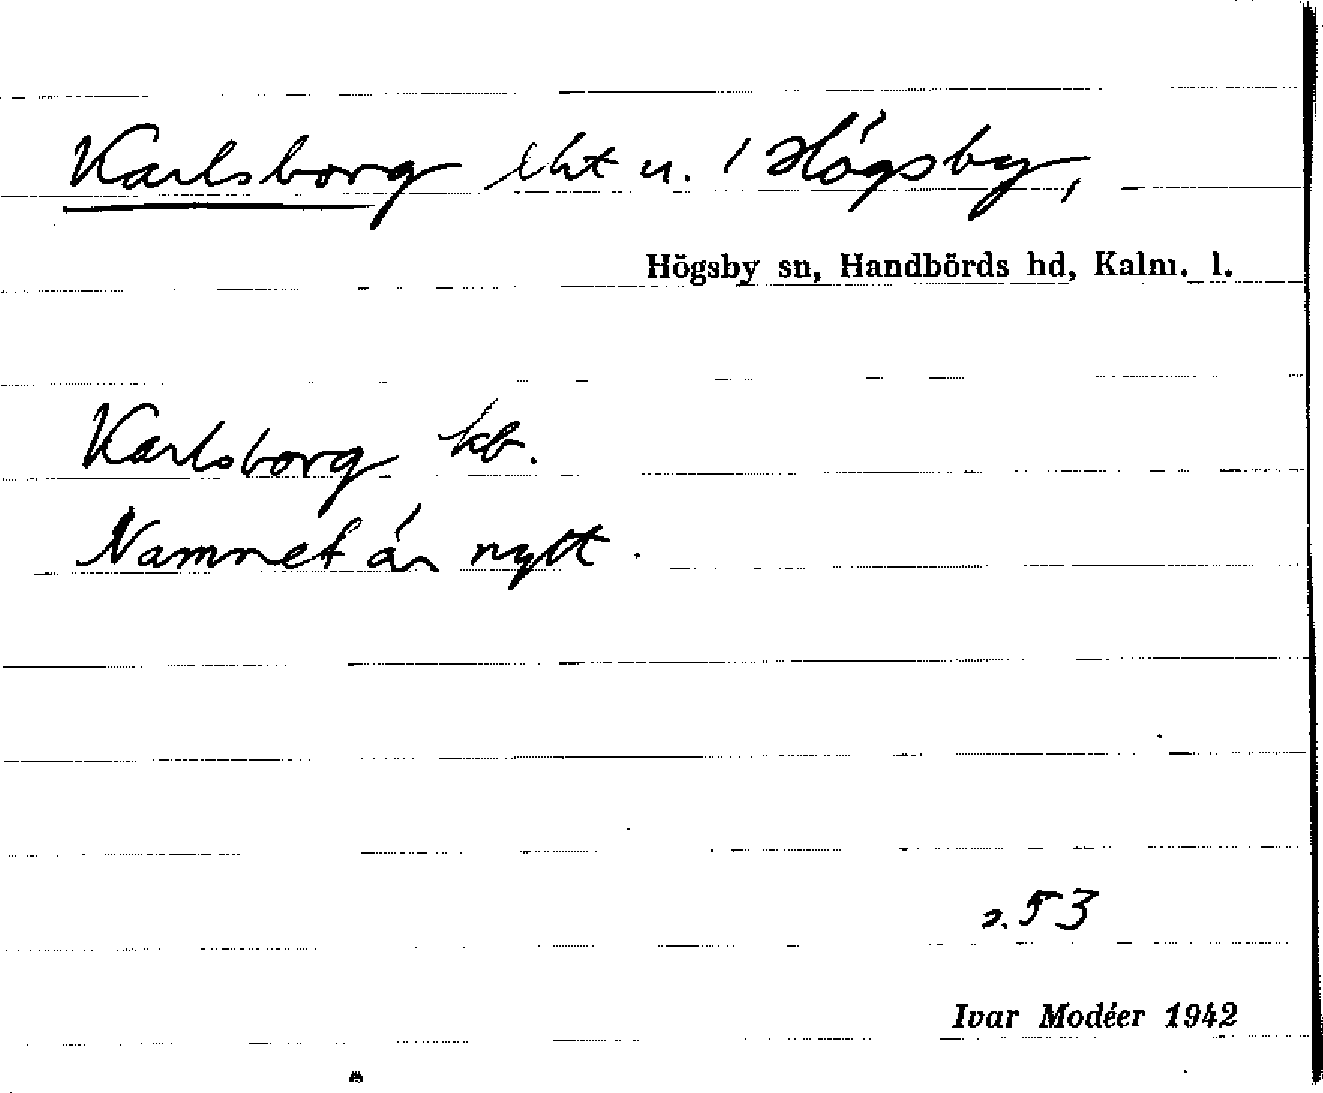 Karlsborg lht u. / Högsby,
Högsby sn, Handbörds hd, Kalm. l.
Karlsborg kb.
Namnet är nytt.
s. 53
Ivar Modéer 1942